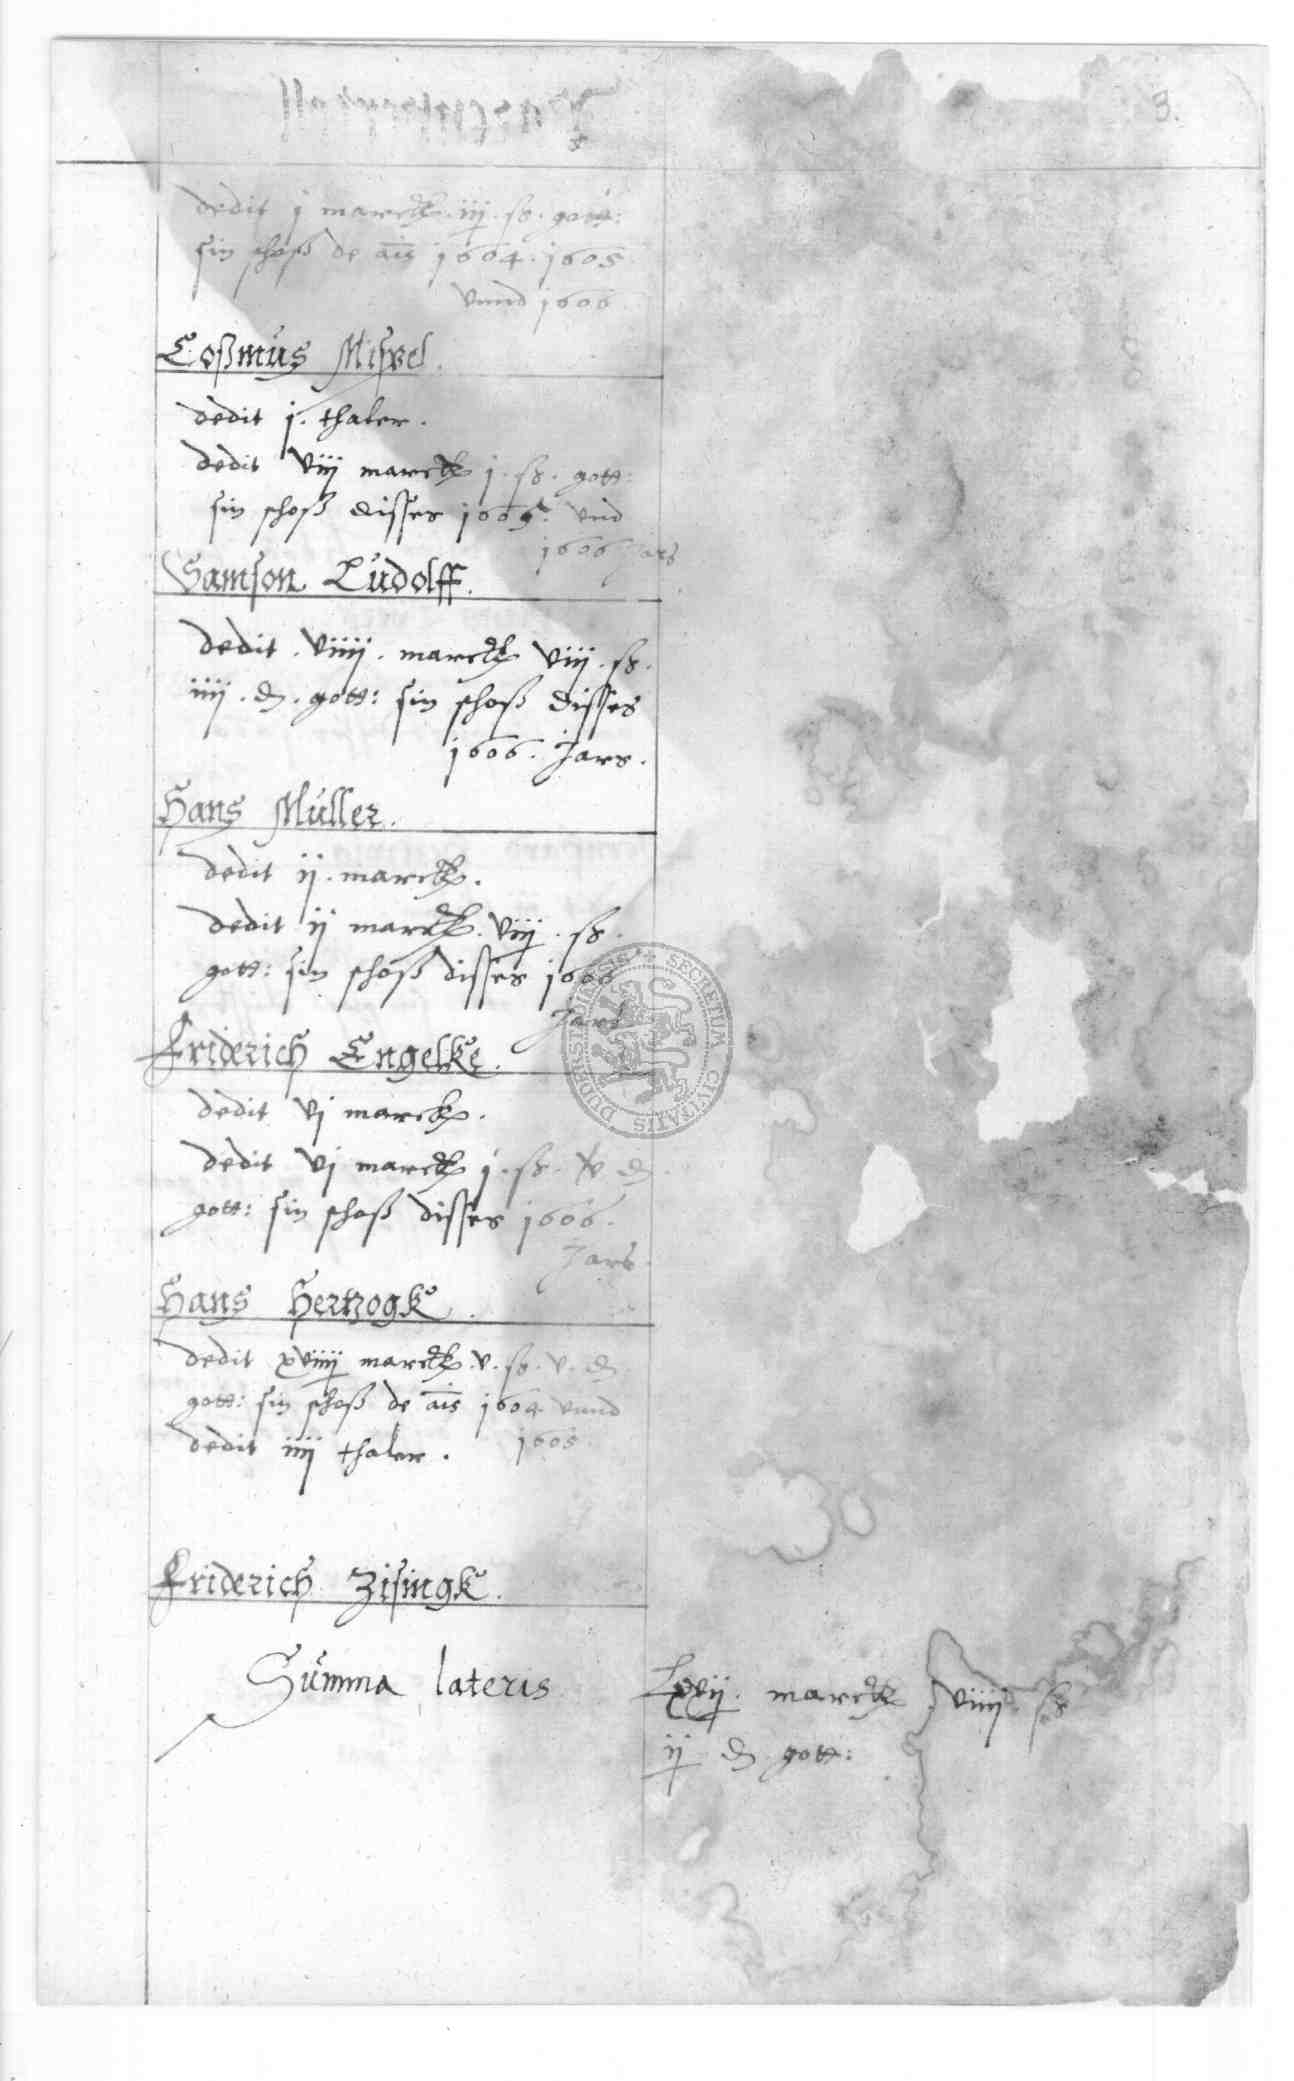 3.
dedit j marck. iij. ß. gott:
sin schoß de ais 1604. 1605
vnnd 1606
Coßmus Mispel.
dedit j. thaler.
dedit viij marck j. ß. gott:
sin schoß disses 1605. vnd
1606 Jars
Samson Ludolff.
dedit. viiij. marck viij. ß.
iiij. d. gott: sin schoß disses
1606. Jars.
Hans Müller.
dedit ij. marck.
dedit ij marck. viij. ß.
gott: sin schoß disses 1606
Jars
Friderich Engelke.
dedit vj marck.
dedit vj marck j. ß. v d.
gott: sin schoß disses 1606.
Jars.
Hans Hertzogk.
dedit xviiij marck. v. ß. v. d
gott: sin schoß de ais 1604 vnnd
1605.
dedit iiij thaler.
Friderich Zisingk.
Summa lateris Lxvij. marck viiij. ß
ij d gott:
SECRETUM CIVITATIS DUDERSTADENSIS